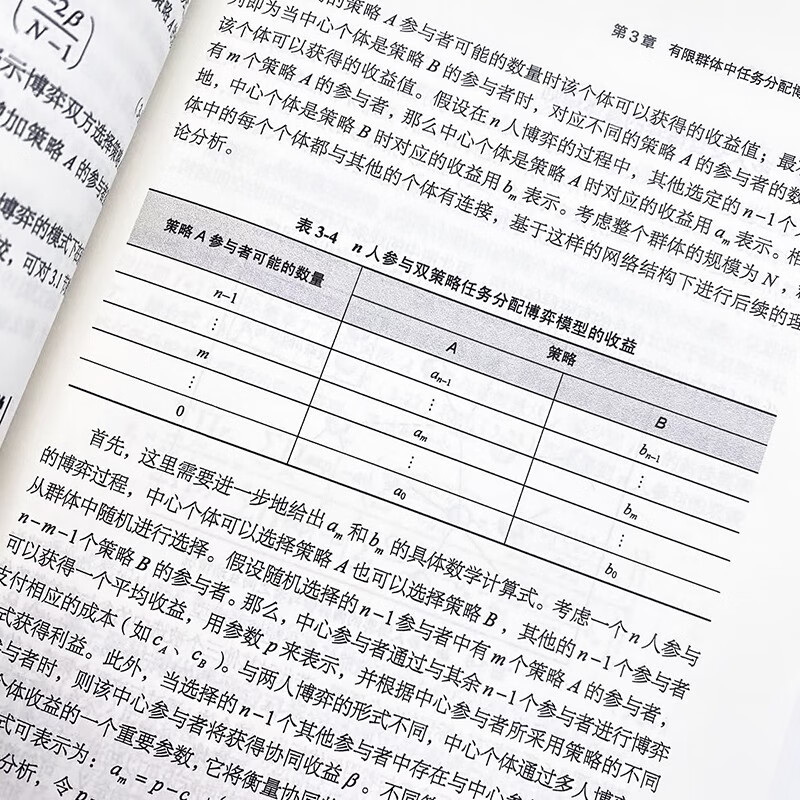 −2β
N−1
示博弈双方选择
加策略 A 的参与
博弈的模式下在
可对3.1
第 3 章 有限群体中任务分配博
的策略 A 参与者可能的数量时该个体可以获得的收益值；最
列即为当中心个体是策略 B 的参与者时，对应不同的策略 A 的参与者的数
该个体可以获得的收益值。假设在 n 人博弈的过程中，其他选定的 n−1 个
有 m 个策略 A 的参与者，那么中心个体是策略 A 时对应的收益用 am 表示。相
地，中心个体是策略 B 时对应的收益用 bm 表示。考虑整个群体的规模为 N，
体中的每个个体都与其他的个体有连接，基于这样的网络结构下进行后续的理
论分析。
表 3-4 n 人参与双策略任务分配博弈模型的收益
策略 A 参与者可能的数量 策略
A B
n−1 an−1 bn−1
⋮ ⋮ ⋮
m am bm
⋮ ⋮ ⋮
0 a0 b0
首先，这里需要进一步地给出 am 和 bm 的具体数学计算式。考虑一个 n 人参与
的博弈过程，中心个体可以选择策略 A 也可以选择策略 B，其他的 n−1 个参与者
从群体中随机进行选择。假设随机选择的 n−1 参与者中有 m 个策略 A 的参与者，
n−m−1 个策略 B 的参与者。那么，中心参与者通过与其余 n−1 个参与者进行博弈
可以获得一个平均收益，用参数 p 来表示，并根据中心参与者所采用策略的不同
支付相应的成本（如 cA、cB）。与两人博弈的形式不同，中心个体通过多人博
式获得利益。此外，当选择的 n−1 个其他参与者中存在与中心参
参与者时，则该中心参与者将获得协同收益 β。不同
个体收益的一个重要参数，它将衡量协同
式可表示为：am = p−c
分析，令 p